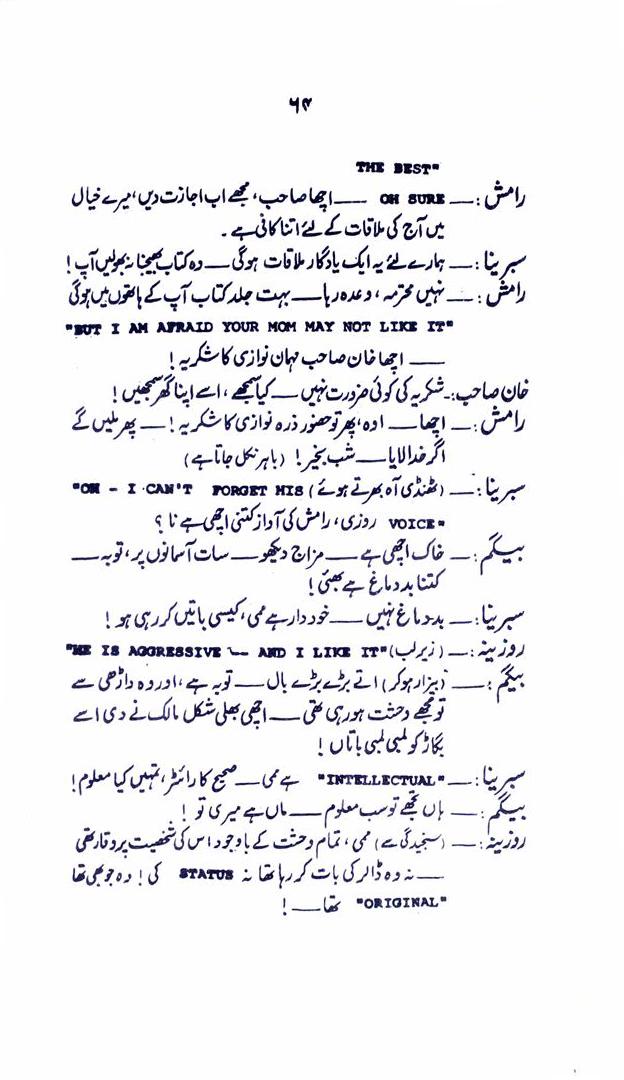 ۶۴
THE BEST"
رامش :ـــ OH SURE ـــ اچھا صاحب، مجھے اب اجازت دیں، میرے خیال
میں آج کی ملاقات کے لئے اتنا کافی ہے۔
سبرینا :ـــ ہمارے لئے یہ ایک یادگار ملاقات ہوگی ـــ وہ کتاب بھیجنا نہ بھولیں آپ !
رامش :ـــ نہیں محترمہ، وعدہ رہا ـــ بہت جلد کتاب آپ کے ہاتھوں میں ہوگی
"BUT I AM AFRAID YOUR MOM MAY NOT LIKE IT"
ـــ اچھا خان صاحب مہمان نوازی کا شکریہ !
خان صاحب:۔ شکریہ کی کوئی ضرورت نہیں ـــ کیا سمجھے، اسے اپنا گھر سمجھیں !
رامش :ـــ اچھا ـــ اوہ، پھر تو حضور ذرہ نوازی کا شکریہ ! ـــ پھر ملیں گے
اگر خدا لایا ـــ شب بخیر ! (باہر نکل جاتا ہے)
سبرینا :ـــ (ٹھنڈی آہ بھرتے ہوئے) "OH - I CAN'T FORGET HIS
VOICE" روزی، رامش کی آواز کتنی اچھی ہے نا ؟
بیگم :ـــ خاک اچھی ہے ـــ مزاج دیکھو ـــ سات آسمانوں پر، توبہ ـــ
کتنا بد دماغ ہے بھئی !
سبرینا :ـــ بد دماغ نہیں ـــ خود دار ہے ممی، کیسی باتیں کر رہی ہو !
روزینہ :ـــ (زیر لب) "HE IS AGGRESSIVE — AND I LIKE IT"
بیگم :ـــ (بیزار ہو کر) اتے بڑے بڑے بال ـــ توبہ ہے، اور وہ داڑھی سے
تو مجھے وحشت ہو رہی تھی ـــ اچھی بھلی شکل مالک نے دی اسے
بگاڑ کو لمبی لمبی باتاں !
سبرینا :ـــ "INTELLECTUAL" ہے ممی ـــ صحیح کا رائٹر، تمہیں کیا معلوم !
بیگم :ـــ ہاں تجھے تو سب معلوم ـــ ماں ہے میری تو !
روزینہ :ـــ (سنجیدگی سے) ممی، تمام وحشت کے باوجود اس کی شخصیت پر وقار تھی
ـــ نہ وہ ڈالر کی بات کر رہا تھا نہ STATUS کی ! وہ جو بھی تھا
"ORIGINAL" تھا ـــ !